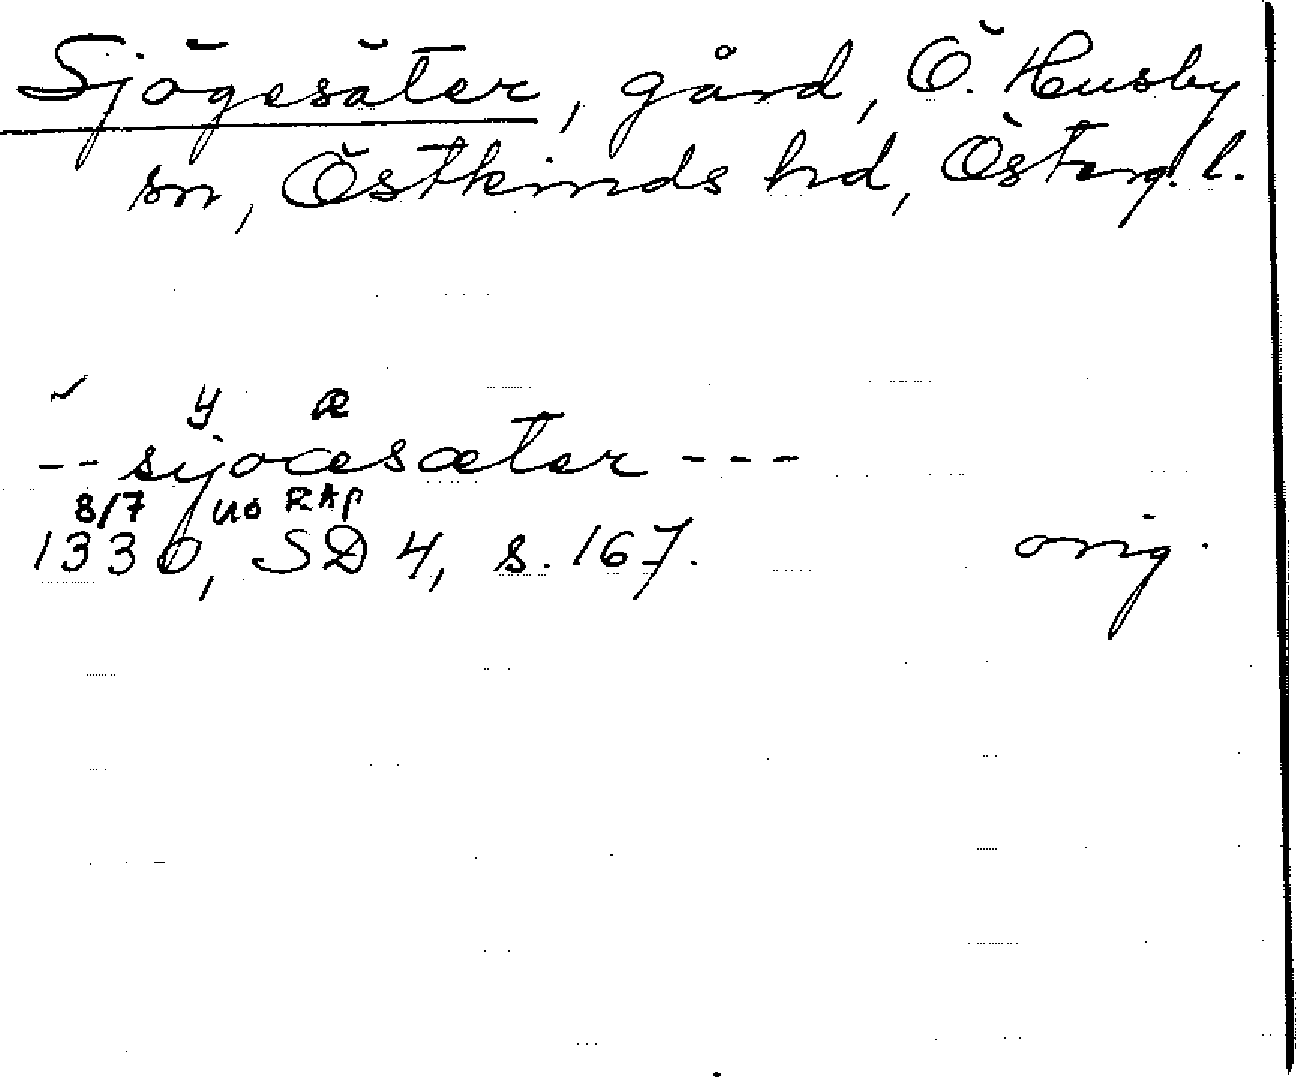 Sjögesäter, gård, Ö. Husby
sn, Östkinds hd, Österg. l.
y æ
-- sijoæsæter ---
8/7 uo RAp
1330, SD 4, s. 167. orig.